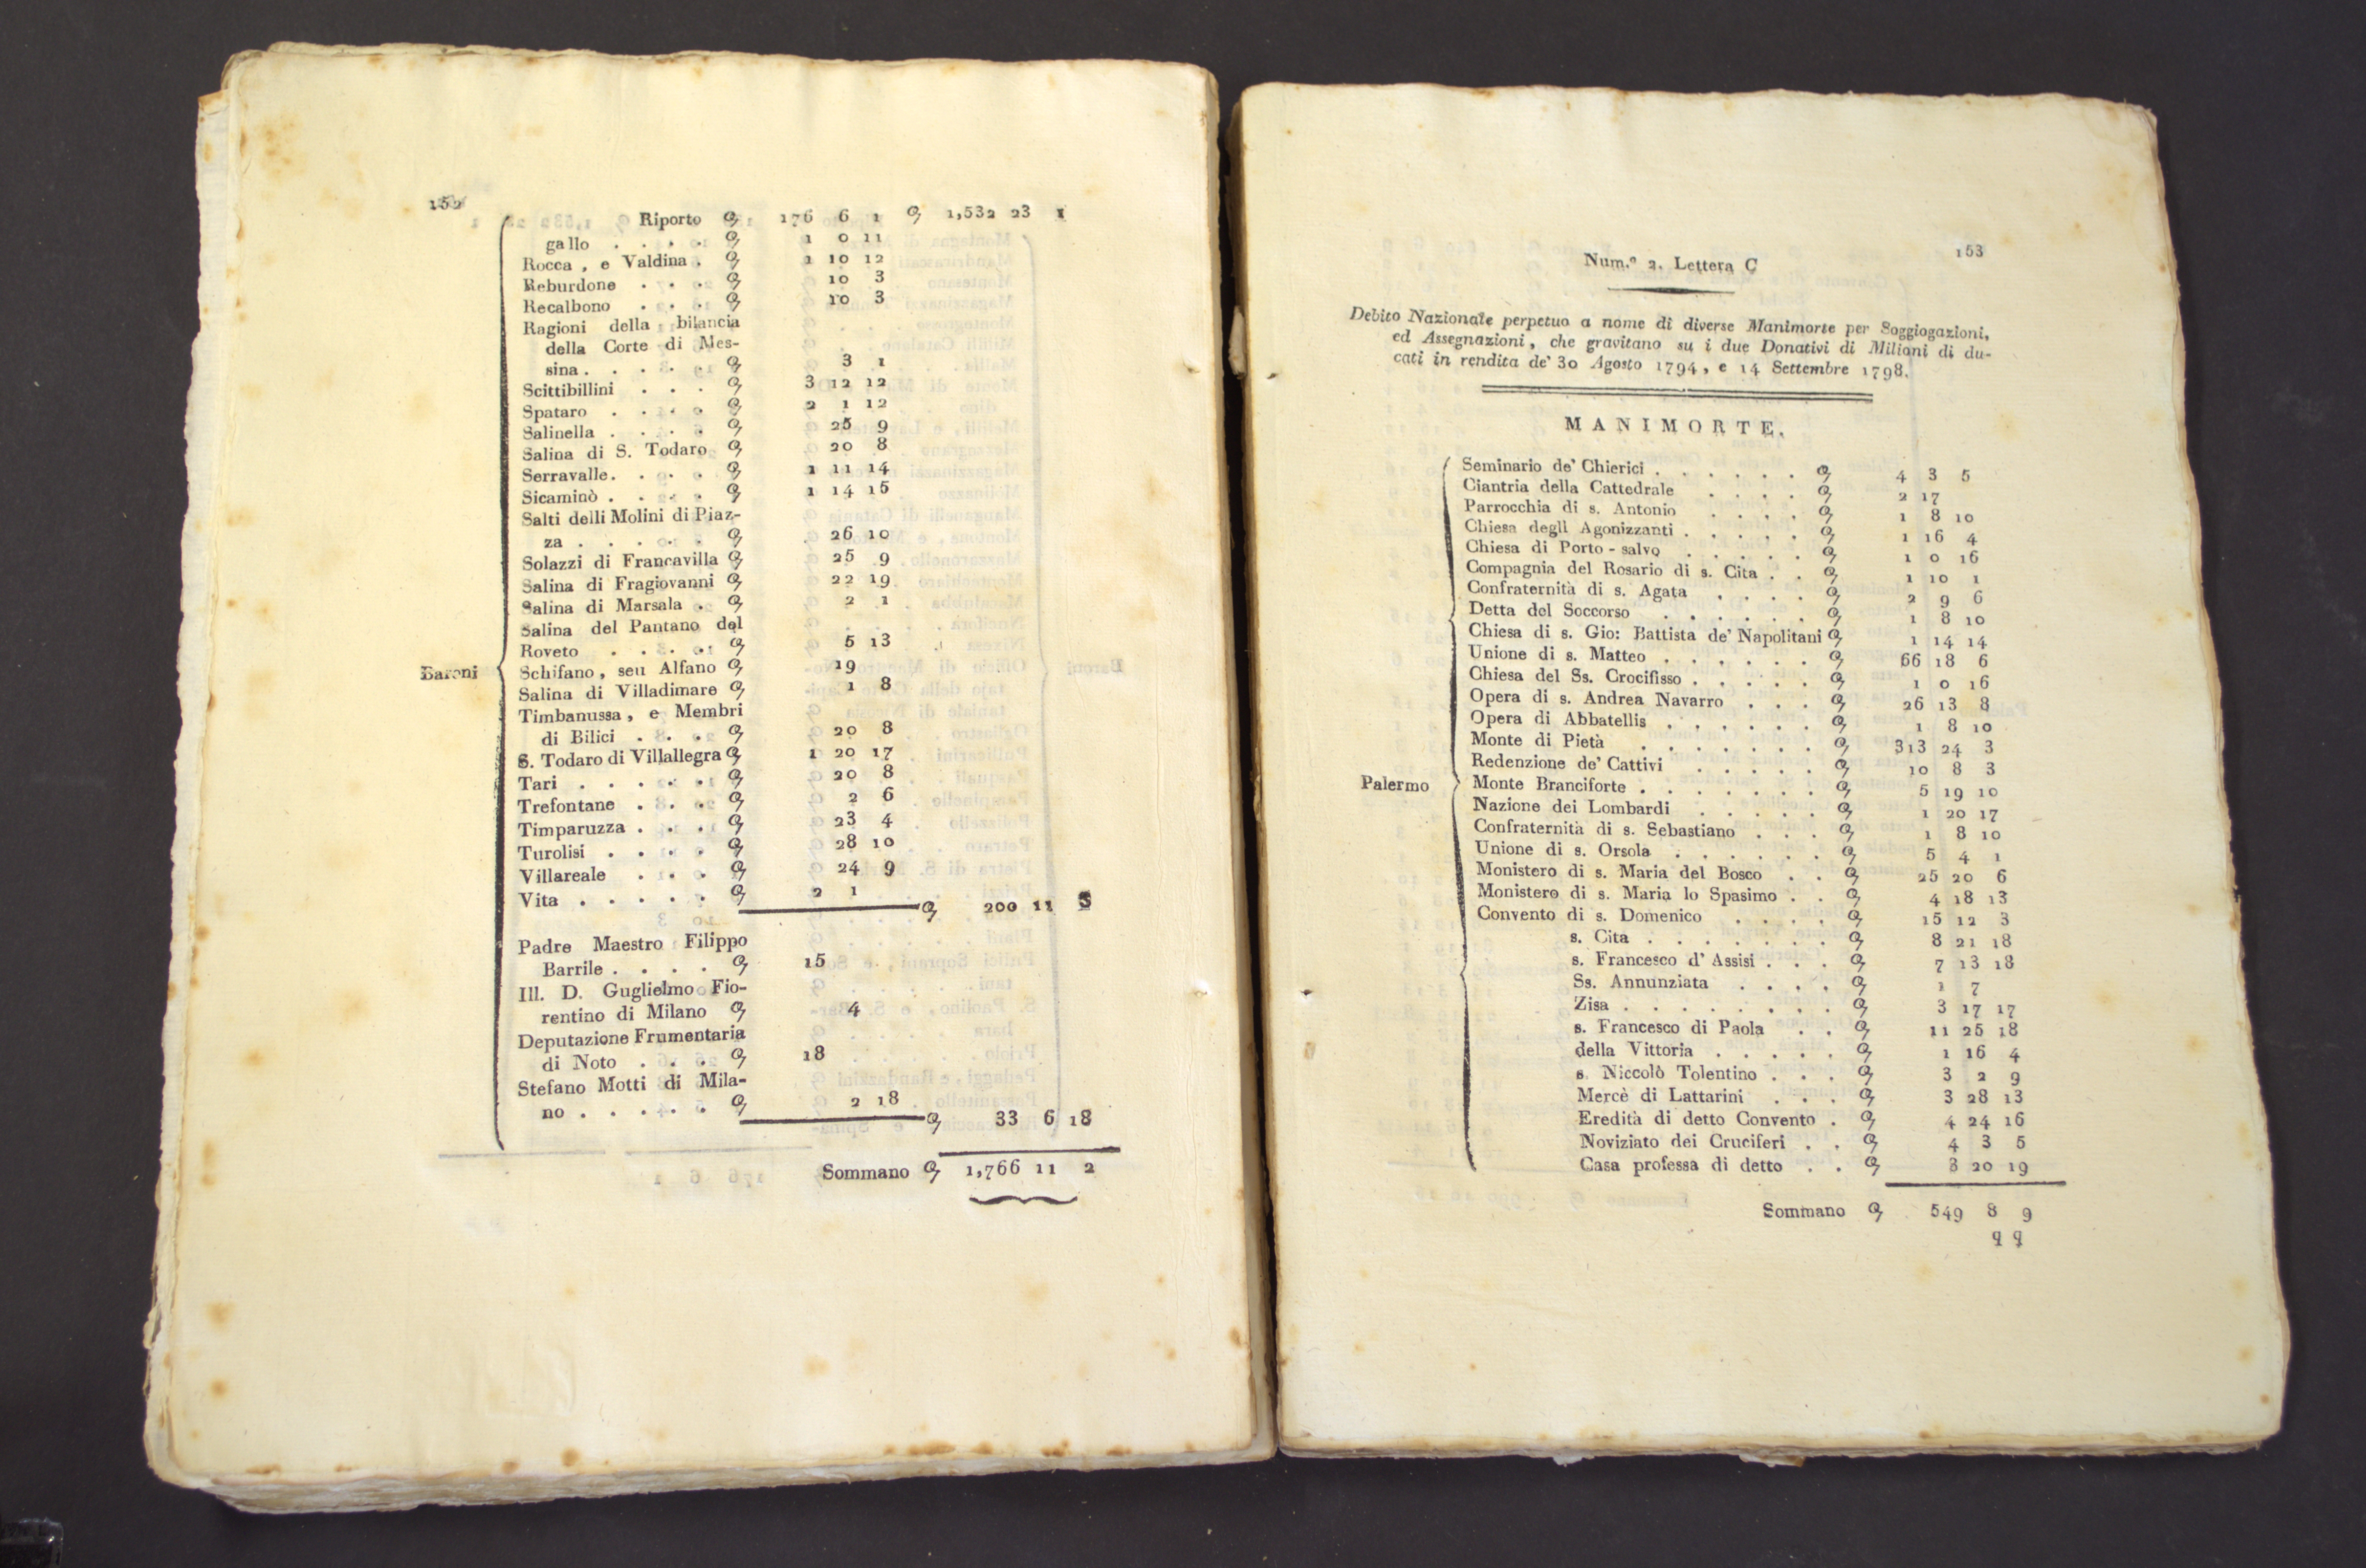 152
Riporto 176 6 1 1,532 23 1
gallo . . . . 1 0 11
Rocca , e Valdina . 1 10 12
Reburdone . . . 10 3
Recalbono . . . 10 3
Ragioni della bilancia
della Corte di Mes-
sina . . . . . 3 1
Scittibillini . . . 3 12 12
Spataro . . . . 2 1 12
Salinella . . . . 25 9
Salina di S. Todaro 20 8
Serravalle . . . . 1 11 14
Sicaminò . . . . 1 14 15
Salti delli Molini di Piaz-
za . . . . . 26 10
Solazzi di Francavilla 25 9
Salina di Fragiovanni 22 19
Salina di Marsala . 2 1
Salina del Pantano del
Roveto . . . . . 5 13
Baroni Schifano , seu Alfano 19
Salina di Villadimare 1 8
Timbanussa , e Membri
di Bilici . . . . 20 8
S. Todaro di Villallegra 1 20 17
Tari . . . . . 20 8
Trefontane . . . 2 6
Timparuzza . . . . 23 4
Turolisi . . . . 28 10
Villareale . . . 24 9
Vita . . . . . 2 1
200 11 3
Padre Maestro Filippo
Barrile . . . . 15
Ill. D. Guglielmo Fio-
rentino di Milano 4
Deputazione Frumentaria
di Noto . . . 18
Stefano Motti di Mila-
no . . . . . 2 18
33 6 18
Sommano 1,766 11 2
153
Num.º 2. Lettera C
Debito Nazionale perpetuo a nome di diverse Manimorte per Soggiogazioni,
ed Assegnazioni, che gravitano su i due Donativi di Milioni di du-
cati in rendita de' 30 Agosto 1794, e 14 Settembre 1798.
MANIMORTE.
Seminario de' Chierici . . . . . . 4 3 5
Ciantria della Cattedrale . . . . 2 17
Parrocchia di s. Antonio . . . . 1 8 10
Chiesa degli Agonizzanti . . . . . 1 16 4
Chiesa di Porto - salvo . . . . . 1 0 16
Compagnia del Rosario di s. Cita . . 1 10 1
Confraternità di s. Agata . . . . 2 9 6
Detta del Soccorso . . . . . . 1 8 10
Chiesa di s. Gio: Battista de' Napolitani 1 14 14
Unione di s. Matteo . . . . . . 66 18 6
Chiesa del Ss. Crocifisso . . . . . 1 0 16
Opera di s. Andrea Navarro . . . 26 13 8
Opera di Abbatellis . . . . . . 1 8 10
Monte di Pietà . . . . . . . 313 24 3
Redenzione de' Cattivi . . . . . 10 8 3
Palermo Monte Branciforte . . . . . . . 5 19 10
Nazione dei Lombardi . . . . . 1 20 17
Confraternità di s. Sebastiano . . . 1 8 10
Unione di s. Orsola . . . . . . 5 4 1
Monistero di s. Maria del Bosco . . 25 20 6
Monistero di s. Maria lo Spasimo . . 4 18 13
Convento di s. Domenico . . . . 15 12 3
s. Cita . . . . . . . 8 21 18
s. Francesco d' Assisi . . . 7 13 18
Ss. Annunziata . . . . 1 7
Zisa . . . . . . . . 3 17 17
s. Francesco di Paola . . 11 25 18
della Vittoria . . . . . 1 16 4
s. Niccolò Tolentino . . . 3 2 9
Mercè di Lattarini . . . 3 28 13
Eredità di detto Convento . 4 24 16
Noviziato dei Cruciferi . . 4 3 5
Casa professa di detto . . 3 20 19
Sommano 549 8 9
q q